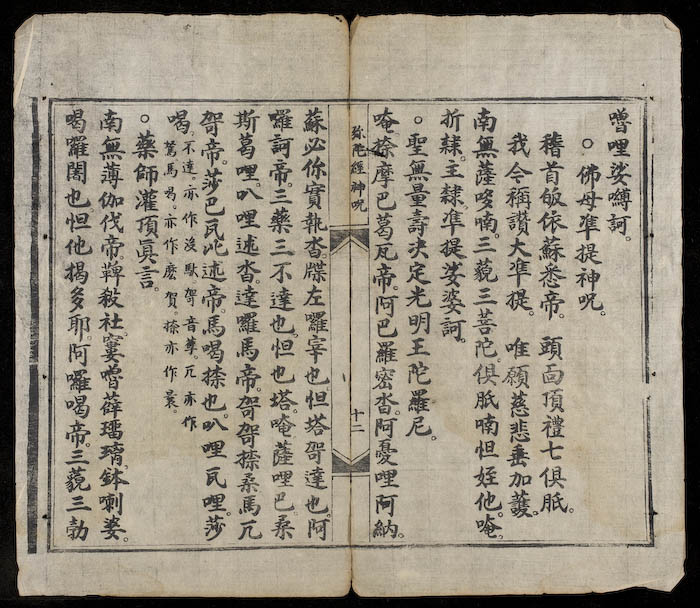 嚕哩娑嚩訶。
○佛母準提神呪。
稽首皈依蘇悉帝。頭面頂禮七俱胝。
我今稱讚大準提。唯願慈悲垂加護。
南無薩哆喃。三藐三菩陀。俱胝喃怛姪他。唵。
折隸。主隸。準提娑婆訶。
○聖無量壽決定光明王陀羅尼。
唵。捺摩巴葛瓦帝。阿巴羅密沓。阿憂哩阿納。
弥陀經神呪
十二
蘇必你實執沓。牒左囉宰也怛塔哿達也。阿
囉訶帝。三藥三不達也。怛也塔。唵薩哩巴桑
斯葛哩。叭哩述沓。達囉馬帝。哿哿捺桑馬兀
哿帝。莎巴瓦比述帝。馬喝捺也。叭哩瓦哩。莎
喝。不達。亦作沒馱哿音葛。兀亦作
驚馬喝。亦作麽賀。捺亦作曩。
○藥師灌頂眞言。
南無薄伽伐帝。鞞殺社。窶嚕薜琉璃。鉢喇婆。
喝羅闍也怛他揭多耶。阿囉喝帝。三藐三勃